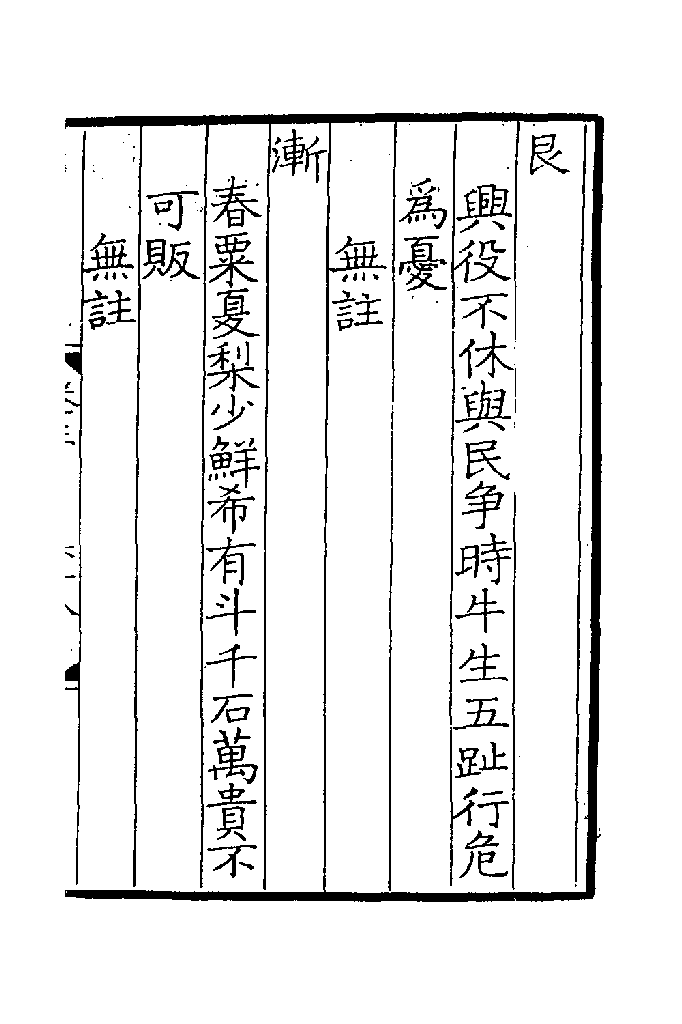 艮
興役不休與民争時牛生五趾行危
爲憂
無註
漸
春粟夏梨少鮮希有斗千石萬貴不
可販
無註